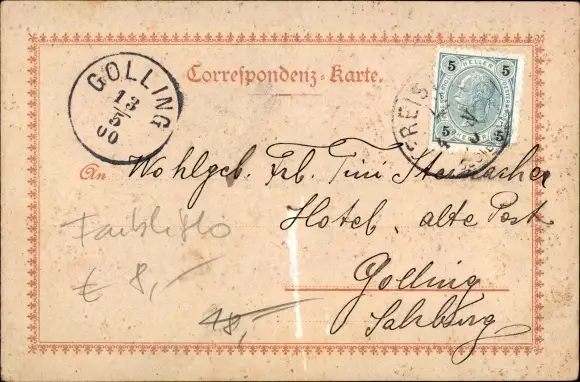 Correspondenz-Karte.
GOLLING
13
5
00
5 HELLER 5
5 5
An Wohlgeb. Frl. Tini
Hotel „alte Post“
Golling
Salzburg
€ 8,-
48,-